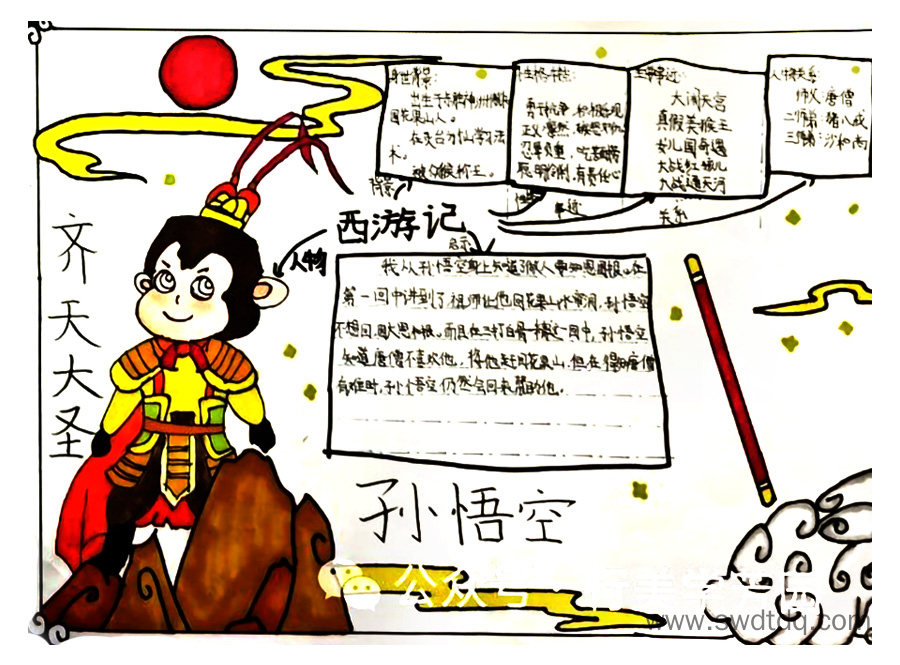 齐天大圣
身世背景:
出生于东胜神洲傲来
国花果山人。
在灵台方寸山学习法
术。
被众猴称王。
性格特点:
忍辱负重,吃苦耐劳
聪明伶俐,有责任心
主要事迹:
大闹天宫
真假美猴王
女儿国奇遇
大战红孩儿
大战通天河
人物关系:
师父:唐僧
二师弟:猪八戒
三师弟:沙和尚
背景
性格
事迹
关系
西游记
人物
启示
我从孙悟空身上知道了做人要知恩图报。在
第一回中讲到了祖师让他回花果山水帘洞,孙悟空
不想回,因大恩未报。而且在三打白骨精这一回中,孙悟空
知道唐僧不喜欢他,将他赶回花果山,但在得知唐僧
有难时,孙悟空仍然会回来帮助他。
孙悟空
公众号
www.swdtdq.com